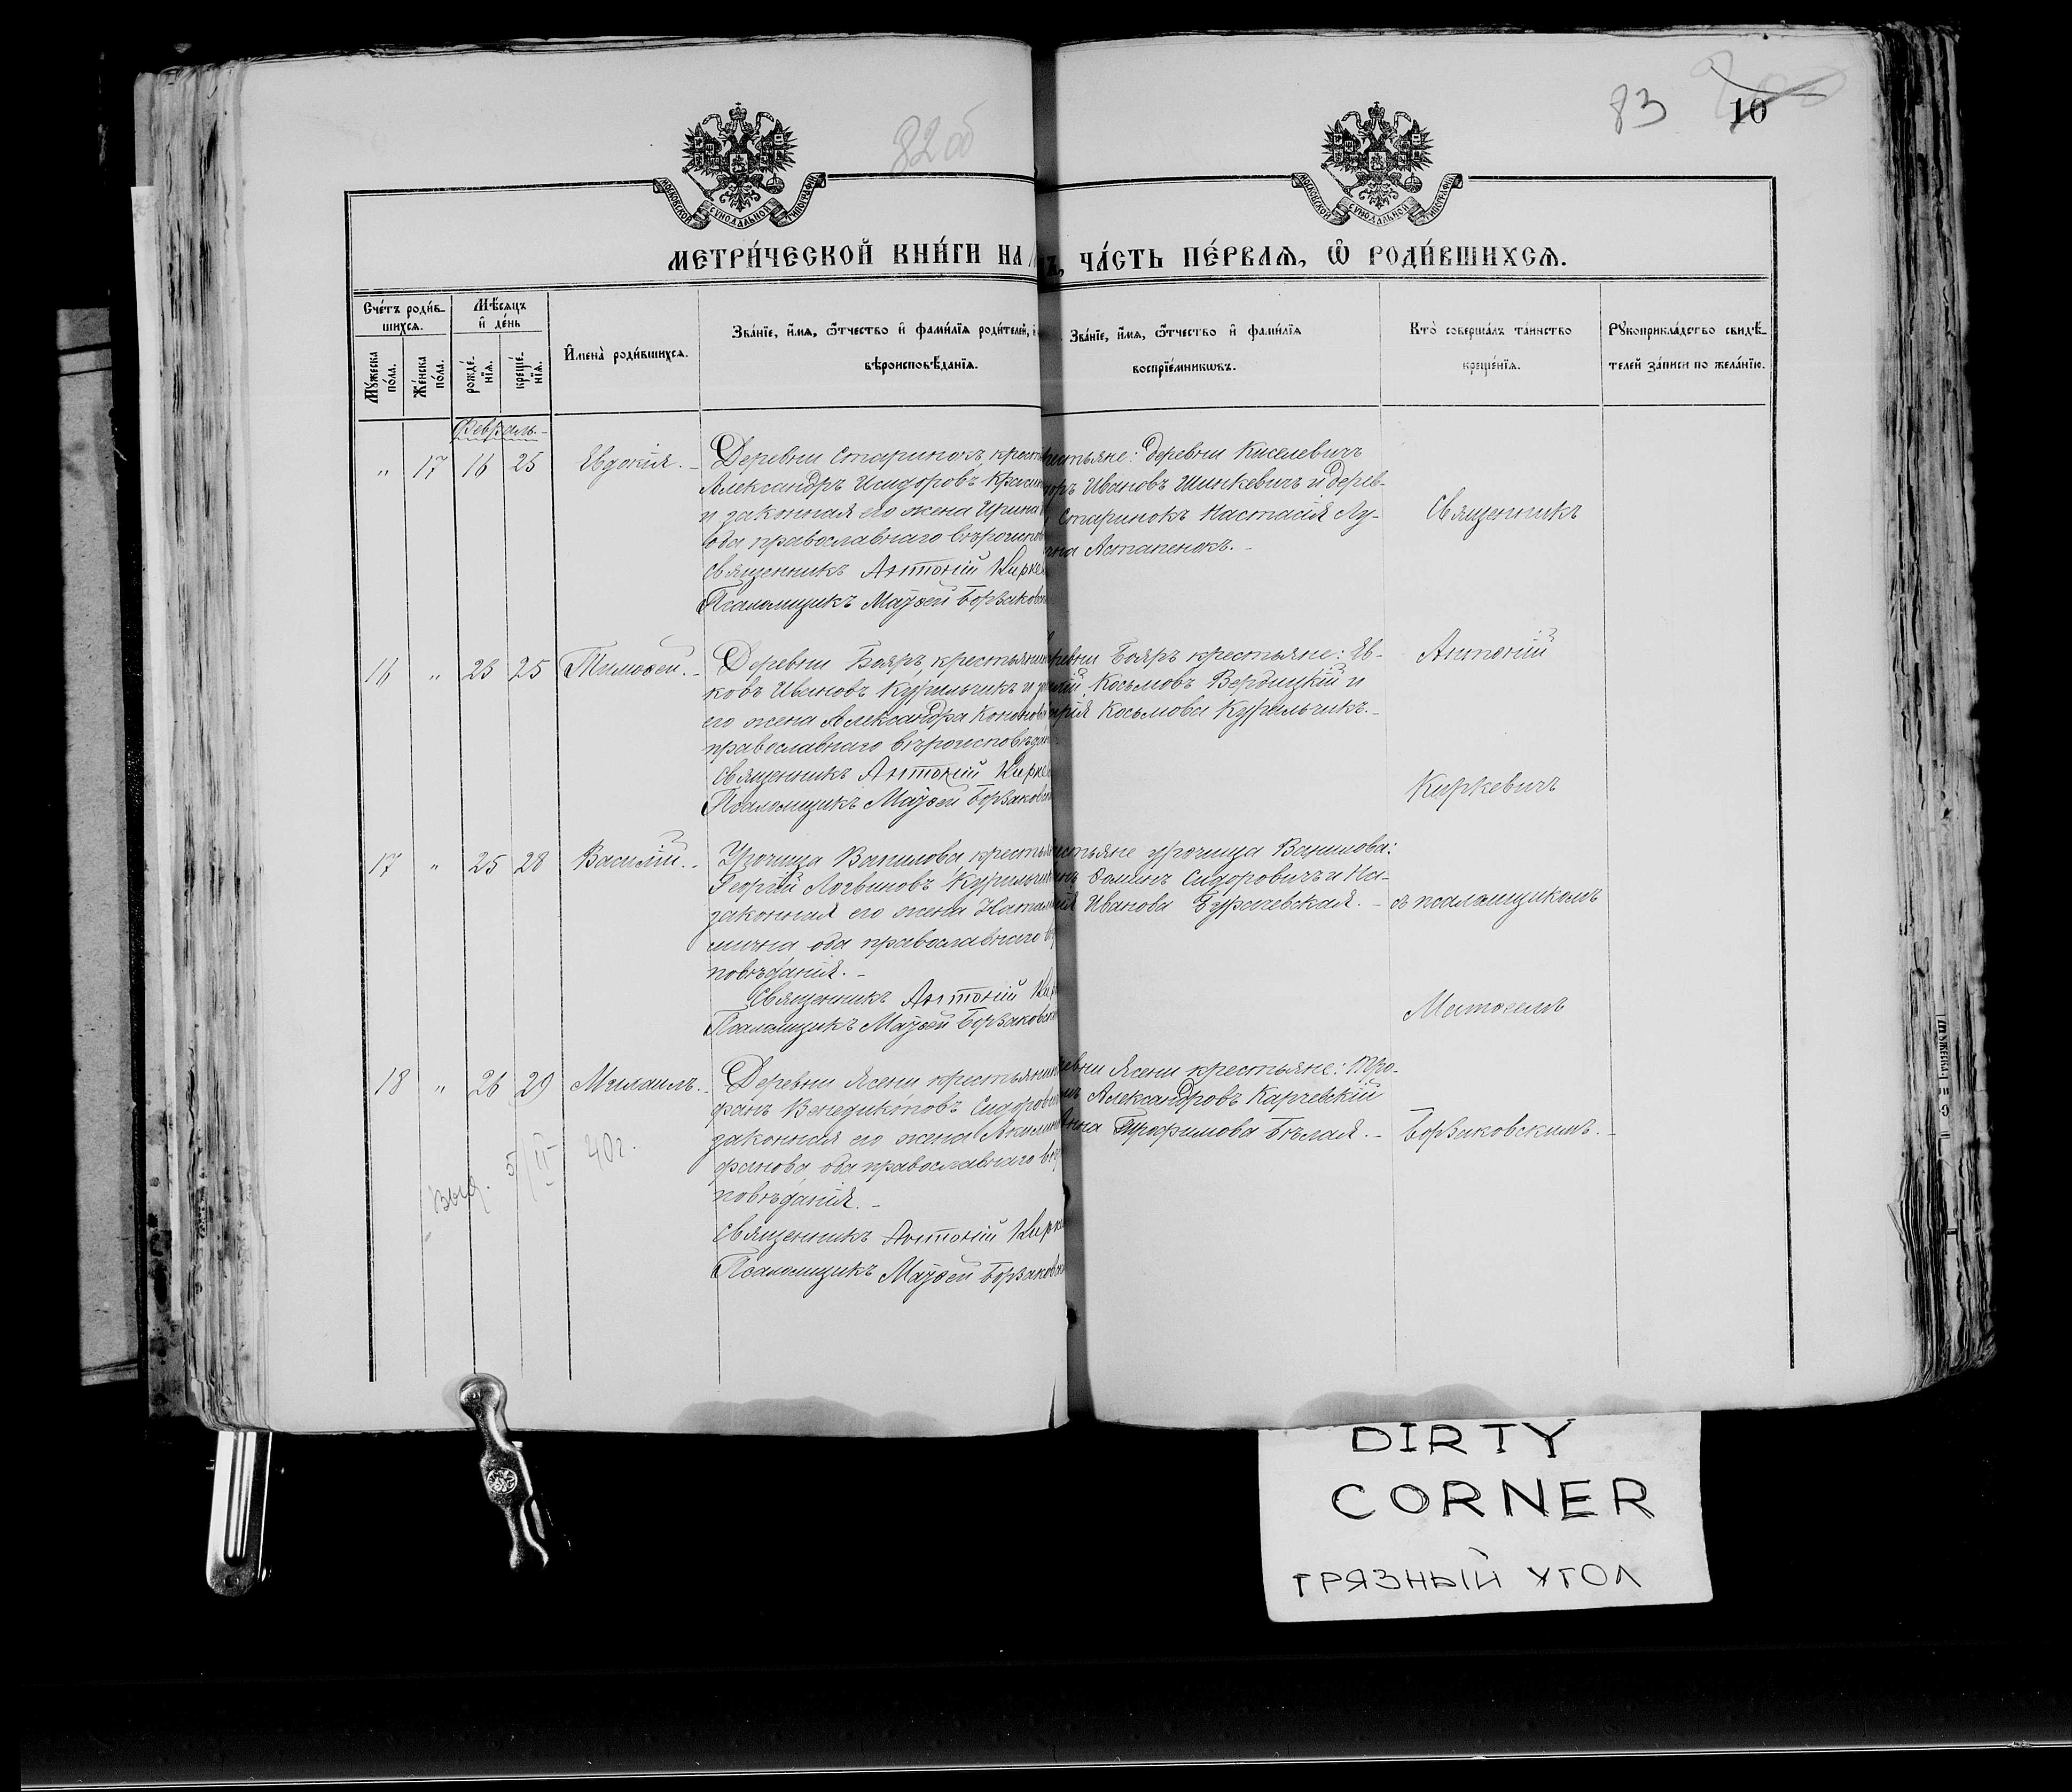 82об
83
10
МОСКОВСКОЙ СѴНОДАЛЬНОЙ ТИПОГРАФІИ
МОСКОВСКОЙ СѴНОДАЛЬНОЙ ТИПОГРАФІИ
МЕТРИ́ЧЕСКОЙ КНИ́ГИ НА
ЧА́СТЬ ПЕ́РВАѦ, Ѿ РОДИ́ВШИХСѦ.
Сче́тъ роди́в-
шихсѧ.
Мѣ́сѧцъ
и҆ де́нь
Мꙋ́жеска
по́ла.
Же́нска
по́ла.
рожде́-
нїѧ.
креще́-
нїѧ.
И҆мена̀ роди́вшихсѧ.
Зва́нїе, и҆́мѧ, ѻ҆́тчество и҆ фами́лїѧ роди́телей,
вѣроисповѣ́данїѧ.
Зва́нїе, и҆́мѧ, ѻ҆́тчество и҆ фами́лїѧ
воспрїе́мникѡвъ.
Кто̀ соверша́лъ та́инство
креще́нїѧ.
Рꙋкоприкла́дство свидѣ́-
телей за́писи по жела́нїю.
Февраль.
" 17 16 25 Евдокія.
Деревни Старинокъ, крест
Александръ Исидоровъ Красн
и законная его жена Ирина
оба православнаго вѣроиспов
Священникъ Антоній Кирке
Псаломщикъ Маѳей Борзаковс
рестьяне: деревни Киселевичъ
Ивановъ Шинкевичъ и дерев-
Старинокъ Настасія Лу-
Астапенокъ.
Священникъ
16 " 23 25 Тимоѳей.
Деревни Бояръ, крестьянин
ковъ Ивановъ Курильчикъ и
его жена Александра Кононов
православнаго вѣроисповѣдан
Священникъ Антоній Кирке
Псаломщикъ Маѳей Борзаков
Бояръ крестьяне: Ев-
Косьмовъ Вербицкій и
Косьмова Курильчикъ.
Антоній
Киркевичъ
17 " 25 28 Василій.
Урочища Вапилова, кресть
Георгій Логвиновъ Курильчи
законная его жена Натал
оба православнаго
повѣданія.
Священникъ Антоній Кир
Псаломщикъ Маѳей Борзаков
урочища Вапилова:
Ѳоминъ Сидоровичъ и На-
Иванова Бурачевская.
съ псаломщикомъ
Матѳеемъ
18 " 26 29 Михаилъ.
Деревни Ясени крестьянин
фанъ Венедиктовъ Сидоров
законная его жена Акилин
фанова, оба православнаго
повѣданія.
Священникъ Антоній Кирк
Псаломщикъ Маѳей Борзаков
Ясени крестьяне: Тро-
Александровъ Карчевскій
Анна Трофимова Бѣлая.
Борзаковскимъ.
выд. 5/II 40г.
DIRTY
CORNER
ГРЯЗНЫЙ УГОЛ